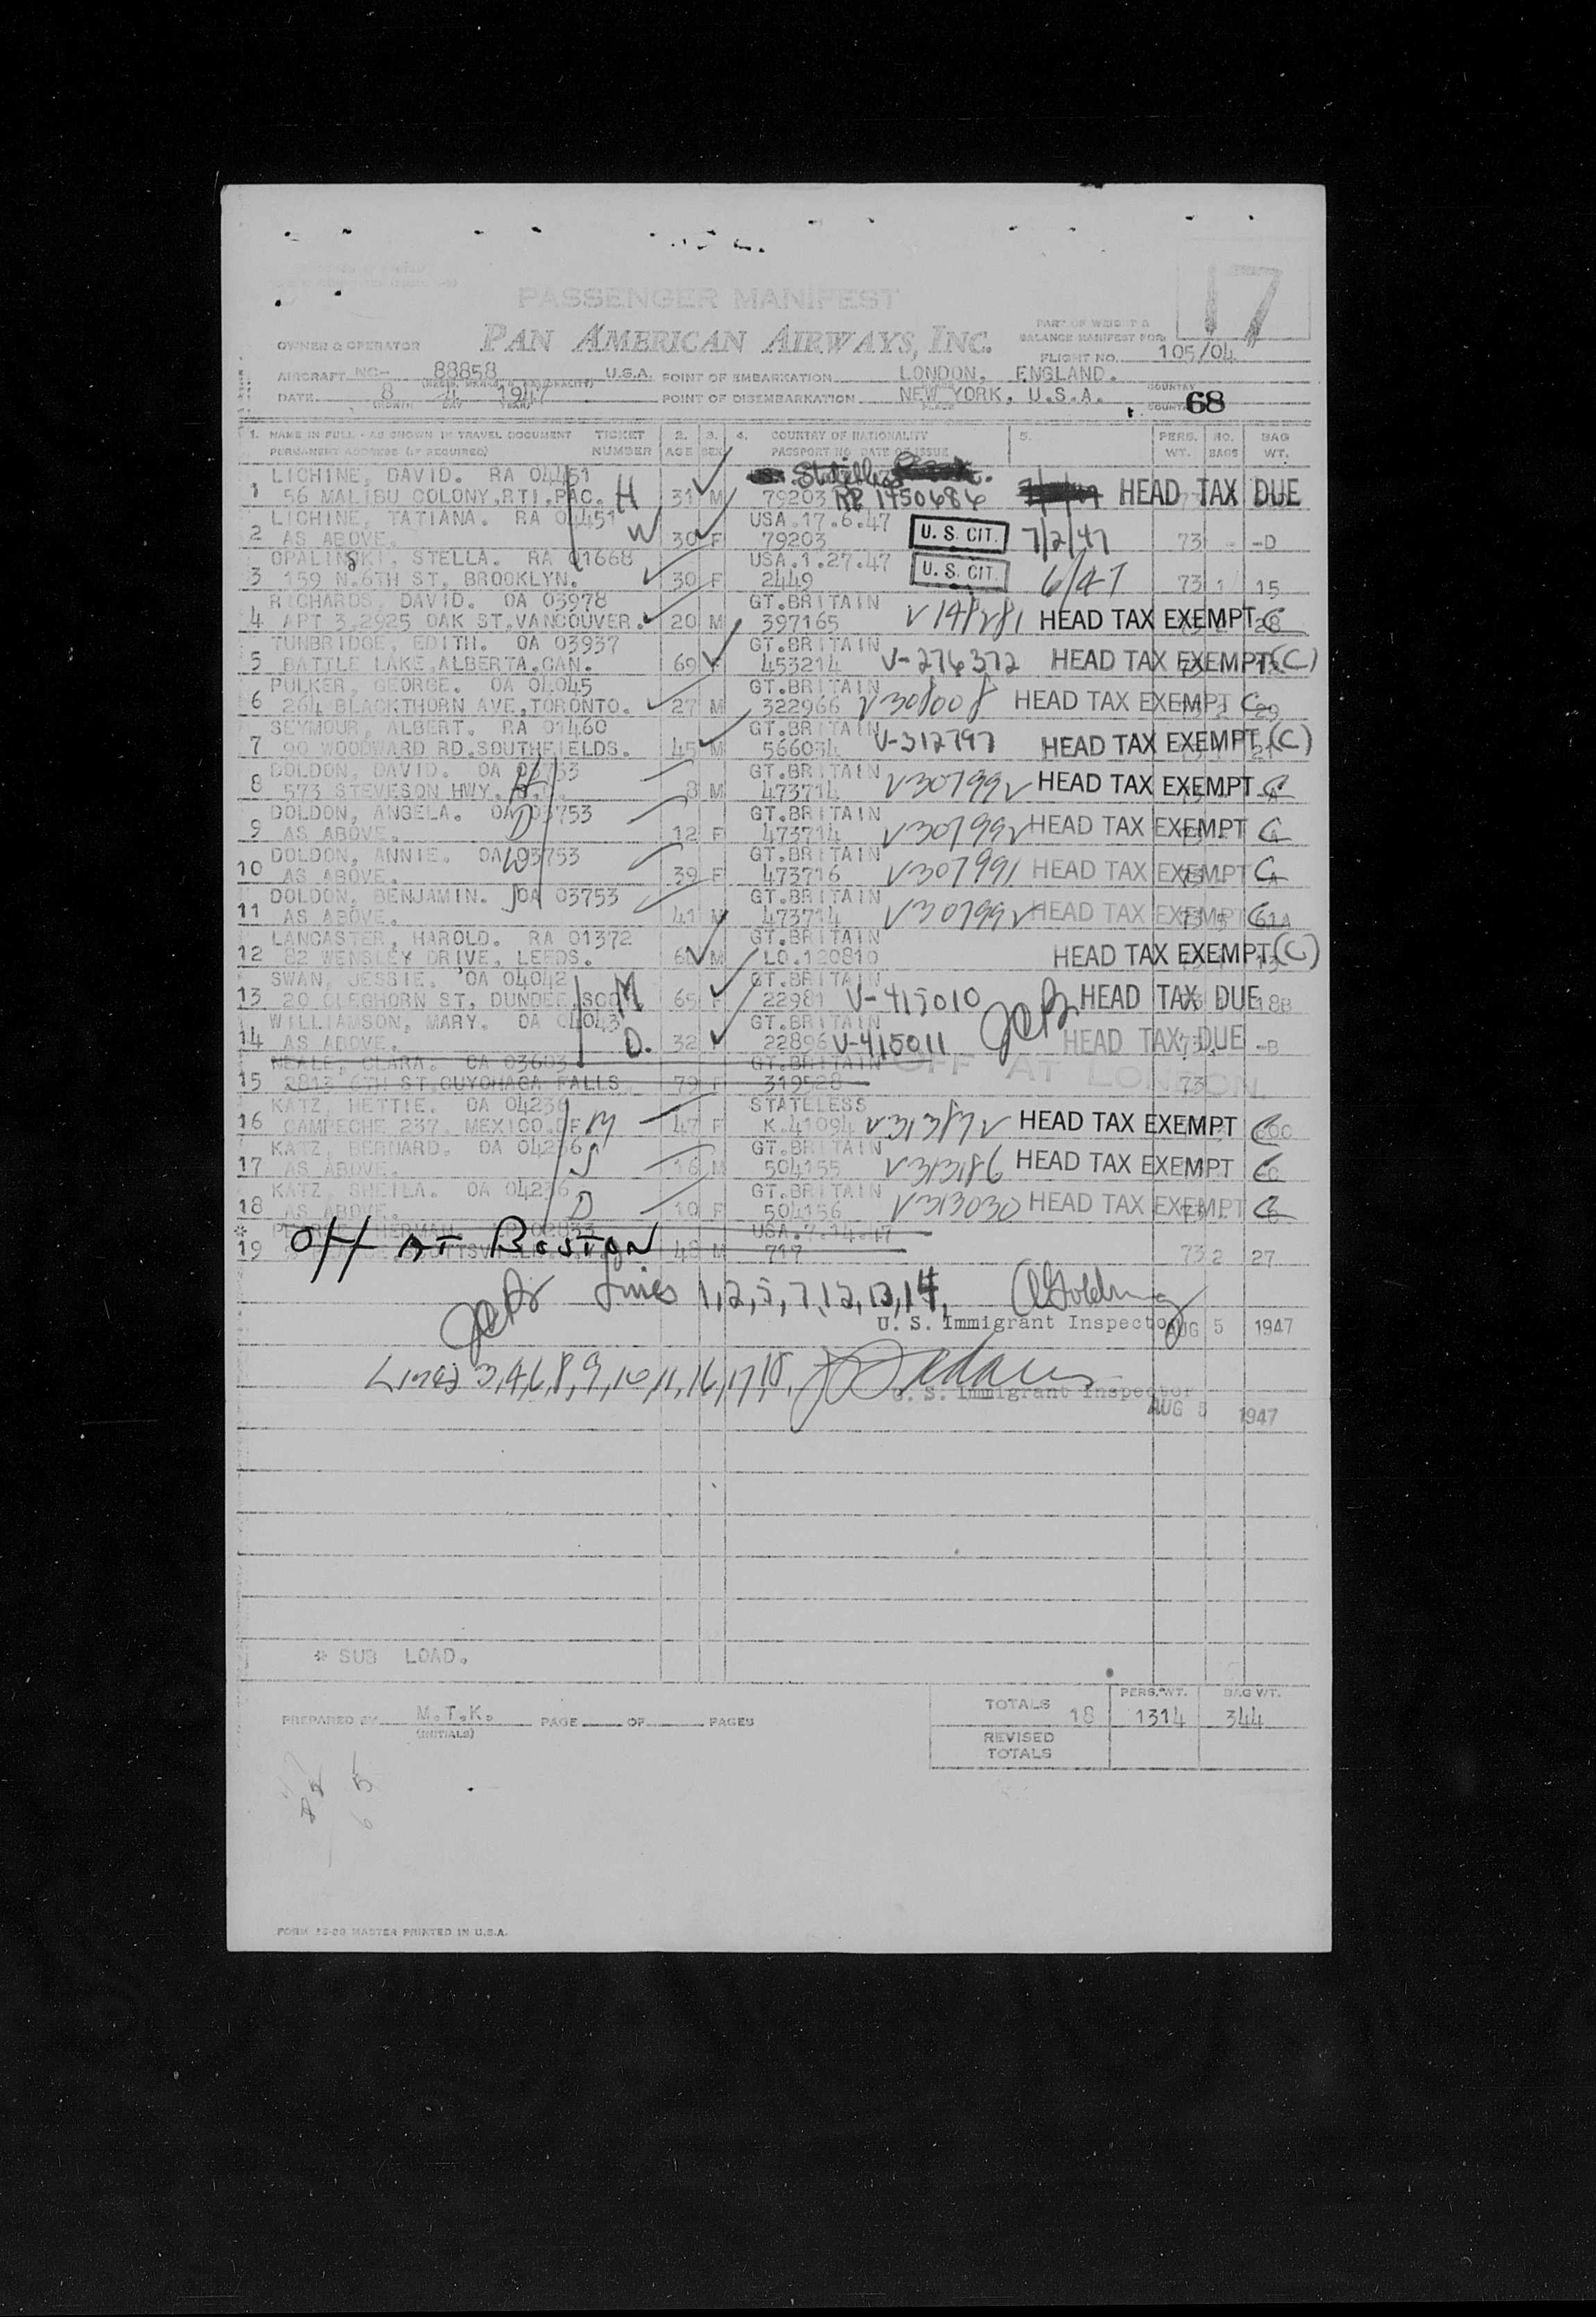 17
PASSENGER MANIFEST
PAN AMERICAN AIRWAYS, INC.
OWNER & OPERATOR
PART OF WEIGHT &
BALANCE MANIFEST FOR:
FLIGHT NO. 105/04
AIRCRAFT NC- 88858 U.S.A. POINT OF EMBARKATION LONDON, ENGLAND.
DATE 8 4 1947 POINT OF DISEMBARKATION NEW YORK, U.S.A.
(MONTH) DAY YEAR) PLACE COUNTRY
68
1. NAME IN FULL - AS SHOWN IN TRAVEL DOCUMENT TICKET 2. 3. 4. COUNTRY OF NATIONALITY 5. PERS. NO. BAG
PERMANENT ADDRESS (IF REQUIRED) NUMBER AGE SEX PASSPORT NO. DATE OF ISSUE WT. BAGS WT.
LICHINE, DAVID. RA 04451 Stateless
1 56 MALIBU COLONY,RTI,PAC. H 31 M 79203 RP 1450686 HEAD TAX DUE
LICHINE, TATIANA. RA 04451 USA.17.6.47
2 AS ABOVE. W 30 F 79203 U. S. CIT. 7/2/47 73 - -D
OPALINSKI, STELLA. RA 01668 USA.1.27.47
3 159 N.6TH ST. BROOKLYN. 30 F 2449 U. S. CIT. 6/47 73 1 15
RICHARDS, DAVID. OA 03978 GT.BRITAIN
4 APT 3,2925 OAK ST,VANCOUVER. 20 M 397165 V148281 HEAD TAX EXEMPT C
TUNBRIDGE, EDITH. OA 03937 GT.BRITAIN
5 BATTLE LAKE,ALBERTA,CAN. 69 F 453214 V-276372 HEAD TAX EXEMPT (C)
PULKER, GEORGE. OA 04045 GT.BRITAIN
6 264 BLACKTHORN AVE,TORONTO. 27 M 322966 V308008 HEAD TAX EXEMPT C 29
SEYMOUR, ALBERT. RA 01460 GT.BRITAIN
7 90 WOODWARD RD,SOUTHFIELDS. 45 M 566034 V-312797 HEAD TAX EXEMPT (C)
DOLDON, DAVID. OA 03753 GT.BRITAIN
8 573 STEVESON HWY. 8 M 473714 V307992 HEAD TAX EXEMPT C
DOLDON, ANGELA. OA 03753 GT.BRITAIN
9 AS ABOVE. D 12 F 473714 V307992 HEAD TAX EXEMPT C
DOLDON, ANNIE. OA 03753 GT.BRITAIN
10 AS ABOVE. W 39 F 473716 V307991 HEAD TAX EXEMPT C
DOLDON, BENJAMIN. OA 03753 GT.BRITAIN
11 AS ABOVE. 41 M 473714 V307992 HEAD TAX EXEMPT 61A
LANCASTER, HAROLD. RA 01372 GT.BRITAIN
12 82 WENSLEY DRIVE, LEEDS. 60 M LO.120810 HEAD TAX EXEMPT (C)
SWAN, JESSIE. OA 04042 GT.BRITAIN
13 20 CLEGHORN ST, DUNDEE,SCO M 65 F 22981 V-415010 HEAD TAX DUE 18B
WILLIAMSON, MARY. OA 04043 GT.BRITAIN
14 AS ABOVE. D. 32 F 22896 V-415011 HEAD TAX DUE -B
NEALE, CLARA. OA 03603 GT.BRITAIN OFF AT LONDON
15 2813 6TH ST,CUYOHAGA FALLS. 79 F 319528 73
KATZ, HETTIE. OA 04236 STATELESS
16 CAMPECHE 237. MEXICO.DF M 47 F K.41094 V313872 HEAD TAX EXEMPT C
KATZ, BERNARD. OA 04236 GT.BRITAIN
17 AS ABOVE. S 16 M 504155 V313186 HEAD TAX EXEMPT C
KATZ, SHEILA. OA 04236 GT.BRITAIN
18 AS ABOVE. D 10 F 504156 V313030 HEAD TAX EXEMPT C
* HERMAN USA.7.14.47
19 OFF AT BOSTON 48 M 717 73 2 27
Lines 1,2,5,7,12,13,14,
U. S. Immigrant Inspector AUG 5 1947
Lines 3,4,6,8,9,10,11,16,17,18,
U. S. Immigrant Inspector
AUG 5 1947
* SUB LOAD.
PREPARED BY M.T.K. PAGE OF PAGES
(INITIALS)
PERS. WT. BAG WT.
TOTALS 18 1314 344
REVISED
TOTALS
FORM MASTER PRINTED IN U.S.A.